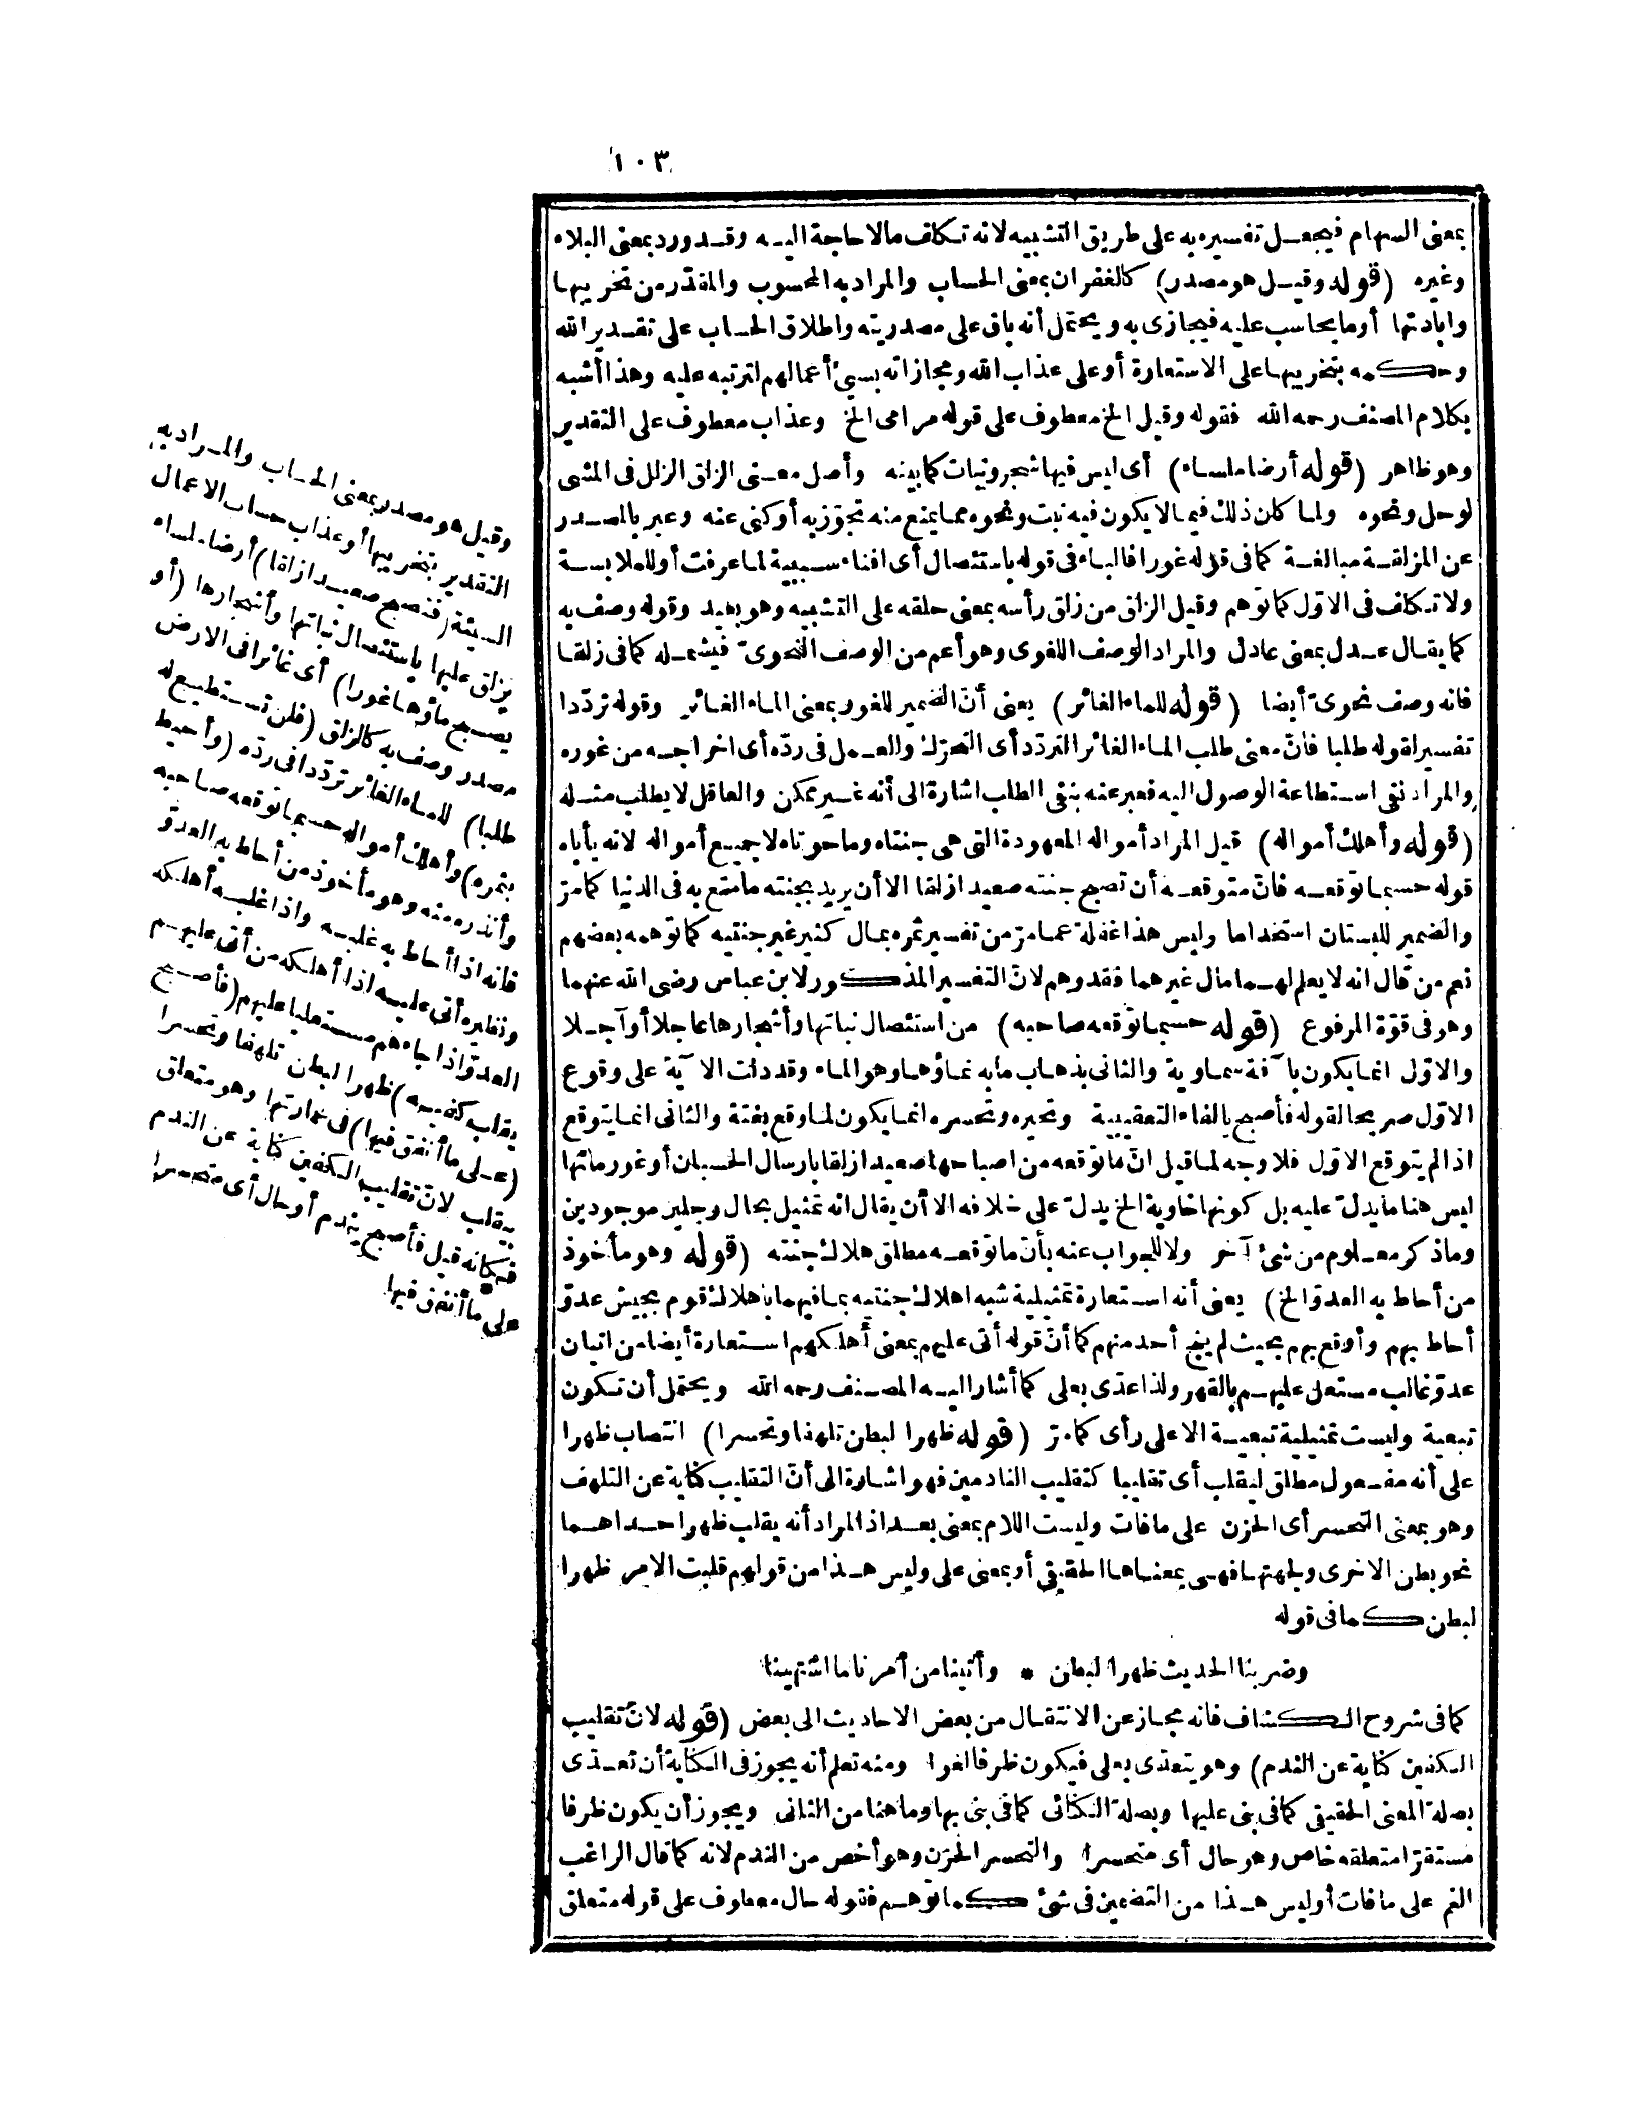 ١٠٣
بمعنى السهام فيجعل تفسيره به على طريق التشبيه لانه تكلف مالا حاجة اليه وقد ورد بمعنى البلاء
وغيره (قوله وقيل هو مصدر) كالغفران بمعنى الحساب والمراد به المحسوب والمقدر من تخريبها
وابادتها أو ما يحاسب عليه فيجازى به ويحتمل أنه باق على مصدريته واطلاق الحساب على تقدير الله
وحكمه بتخريبها على الاستعارة أو على عذاب الله ومجازاته بسيئ أعمالهم لترتبه عليه وهذا أشبه
بكلام المصنف رحمه الله فقوله وقيل الخ معطوف على قوله مرامى الخ وعذاب معطوف على التقدير
وهو ظاهر (قوله أرضا ملساء) أى ليس فيها شجر ونبات كما بينه وأصل معنى الزلق الزلل فى المشى
لوحل ونحوه ولما كان ذلك فيما لا يكون فيه نبت ونحوه مما يمنع منه تجوّز به أو كنى عنه وعبر بالمصدر
عن المزلقة مبالغة كما فى قوله غورا فالباء فى قوله باستئصال أى افناء سببية لما عرفت أو للملابسة
ولا تكلف فى الاوّل كما توهم وقيل الزلق من زلق رأسه بمعنى حلقه على التشبيه وهو بعيد وقوله وصف به
كما يقال عدل بمعنى عادل والمراد الوصف اللغوى وهو أعم من الوصف النحوىّ فيشمله كما فى زلقا
فانه وصف نحوىّ أيضا (قوله للماء الغائر) يعنى أنّ الضمير للغور بمعنى الماء الغائر وقوله تردّدا
تفسير لقوله طلبا فانّ معنى طلب الماء الغائر التردّد أى التحرّك والعمل فى ردّه أى اخراجه من غوره
والمراد نفى استطاعة الوصول اليه فعبر عنه بنفى الطلب اشارة الى أنه غير ممكن والعاقل لا يطلب مثله
(قوله وأهلك أمواله) قيل المراد أمواله المعهودة التى هى جنتاه وما حوتاه لا جميع أمواله لانه يأباه
قوله حسبما توقعه فانّ متوقعه أن تصبح جنته صعيدا زلقا الا أن يريد بجنته ما متع به فى الدنيا كما مرّ
والضمير للبستان استخداما وليس هذا غفلة عما مرّ من تفسير ثمره بمال كثير غير جنتيه كما توهمه بعضهم
نعم من قال انه لا يعلم لهما مال غيرهما فقد وهم لانّ التفسير المذكور لابن عباس رضى الله عنهما
وهو فى قوّة المرفوع (قوله حسبما توقعه صاحبه) من استئصال نباتها وأشجارها عاجلا أو آجلا
والاوّل انما يكون بآفة سماوية والثانى بذهاب ما به نماؤها وهو الماء وقد دلت الآية على وقوع
الاوّل صريحا لقوله فأصبح بالفاء التعقيبية وتحيره وتحسره انما يكون لما وقع بغتة والثانى انما يتوقع
اذا لم يتوقع الاوّل فلا وجه لما قيل انّ ما توقعه من اصباحها صعيدا زلقا بارسال الحسبان أو غور مائها
ليس هنا ما يدلّ عليه بل كونها خاوية الخ يدلّ على خلافه الا أن يقال انه تمثيل بحال رجلين موجودين
وما ذكر معلوم من شئ آخر ولا للجواب عنه بأنّ ما توقعه مطلق هلاك جنته (قوله وهو مأخوذ
من أحاط به العدوّ الخ) يعنى أنه استعارة تمثيلية شبه اهلاك جنتيه بما فيهما باهلاك قوم بجيش عدوّ
أحاط بهم وأوقع بهم بحيث لم ينج أحد منهم كما أنّ قوله أتى عليهم بمعنى أهلكهم استعارة أيضا من اتيان
عدوّ غالب مستعل عليهم بالقهر ولذا عدّى بعلى كما أشار اليه المصنف رحمه الله ويحتمل أن تكون
تبعية وليست تمثيلية تبعية الا على رأى كما مرّ (قوله ظهرا لبطن تلهفا وتحسرا) انتصاب ظهرا
على أنه مفعول مطلق ليقلب أى تقليبا كتقليب النادمين فهو اشارة الى أنّ التقليب كناية عن التلهف
وهو بمعنى التحسر أى الحزن على ما فات وليست اللام بمعنى بعد اذ المراد أنه يقلب ظهرا حداهما
نحو بطن الاخرى ولجهتها فهى بمعناها الحقيقى أو بمعنى على وليس هذا من قولهم قلبت الامر ظهرا
لبطن كما فى قوله
وضربنا الحديث ظهرا لبطن * وأتينا من أمرنا ما اشتهينا
كما فى شروح الكشاف فانه مجاز عن الانتقال من بعض الاحاديث الى بعض (قوله لانّ تقليب
الكفين كناية عن الندم) وهو يتعدّى بعلى فيكون ظرفا لغوا ومنه تعلم أنه يجوز فى الكناية أن تعدّى
بصلة المعنى الحقيقى كما فى بنى عليها وبصلة الكنائى كما فى بنى بها وما هنا من الثانى ويجوز أن يكون ظرفا
مستقرّا متعلقه خاص وهو حال أى متحسرا والتحسر الحزن وهو أخص من الندم لانه كما قال الراغب
الغم على ما فات أو ليس هذا من التضمين فى شئ كما توهم فقوله حال معطوف على قوله متعلق
وقيل هو مصدر بمعنى الحساب والمراد به
التقدير بتخريبها أو عذاب حساب الاعمال
السيئة (فتصبح صعيدا زلقا) أرضا ملساء
يزلق عليها باستئصال نباتها وأشجارها (أو
يصبح ماؤها غورا) أى غائرا فى الارض
مصدر وصف به كالزلق (فلن تستطيع له
طلبا) للماء الغائر تردّدا فى ردّه (وأحيط
بثمره) وأهلك أمواله حسبما توقعه صاحبه
وأنذره منه وهو مأخوذ من أحاط به العدوّ
فانه اذا أحاط به غلبه واذا غلبه أهلكه
ونظيره أتى عليه اذا أهلكه من أتى عليهم
العدوّ اذا جاءهم مستعليا عليهم (فأصبح
يقلب كفيه) ظهرا لبطن تلهفا وتحسرا
(على ما أنفق فيها) فى عمارتها وهو متعلق
بيقلب لانّ تقليب الكفين كناية عن الندم
فكأنه قيل فأصبح يندم أو حال أى متحسرا
على ما أنفق فيها